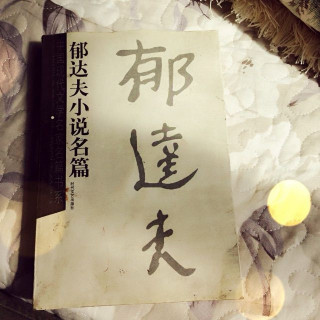 郁达夫
郁达夫小说名篇